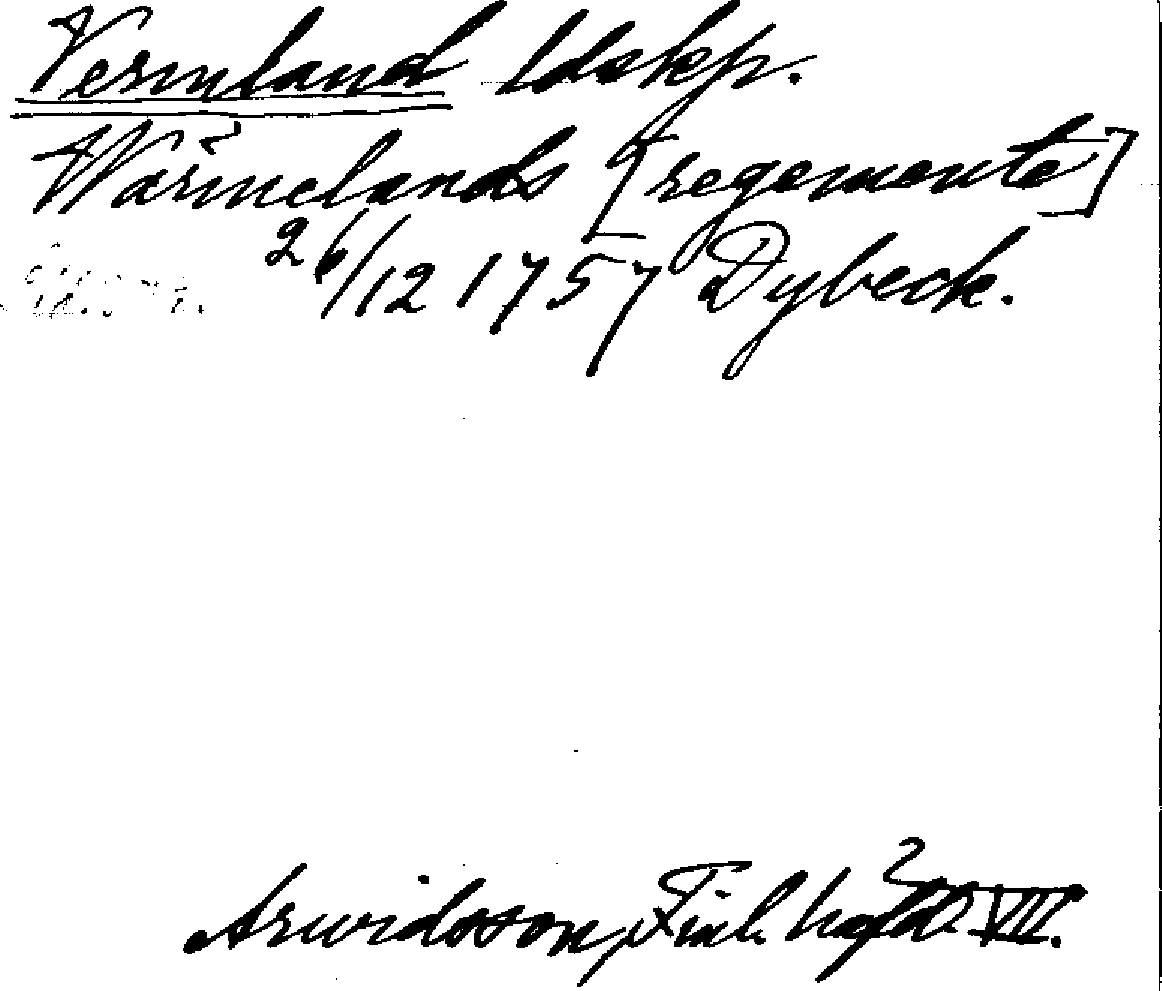 Vermland ldskp.
Wärmelands [regemente]
26/12 1757 Dybeck.
Arwidsson, Finl. häfd. VII.